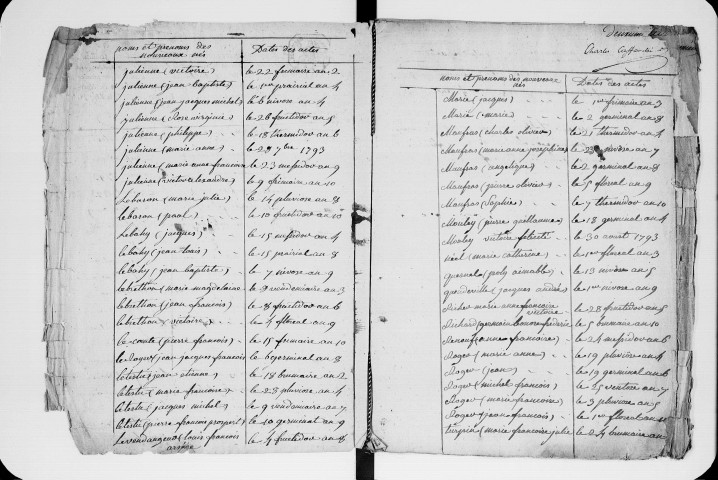 noms et prenoms des nouveaux nés
Dates des actes
julienne (victoire) le 22 frimaire an 2
julienne (jean baptiste) le 1er prairial an 4
julienne (jean jacques michel) le 6 nivose an 4
julienne (Rose virginie) le 26 fructidor an 5
julienne (philippe) le 18 thermidor an 6
julienne (marie anne) le 2 7bre 1793
julienne (marie anne francoise) le 23 messidor an 9
julienne (victor alexandre) le 9 frimaire an 10
Lebaron (marie julie) le 14 pluviose an 8
lebaron (paul) le 10 fructidor an 10
Lebahy (jacques) le 15 messidor an 4
lebahy (jean louis) le 15 prairial an 8
le bahy (jean baptiste) le 7 nivose an 9
lebrethon (marie magdelaine) le 9 vendemiaire an 3
lebrethon (jean francois) le 8 fructidor an 6
lebrethon (victoire) le 4 floreal an 9
le comte (pierre francois) le 15 frimaire an 10
le Roger (jean jacques francois) le 6 germinal an 8
letestu (jean etienne) le 18 brumaire an 2
letestu (marie francoise) le 28 pluviose an 4
letestu (jacques michel) le 9 vendemiaire an 7
letestu (pierre francois prosper) le 10 germinal an 9
levendangeur (louis francois arsene) le 4 fructidor an 8
noms et prenoms des nouveaux nés
Dates des actes
Marie (jacques) le 1er frimaire an 3
Marie (marie) le 2 germinal an 8
Maufras (charles olivier) le 21 thermidor an 4
Maufras (marie anne josephine) le 28 nivose an 7
Maufras (angelique) le 2 germinal an 8
Maufras (pierre olivier) le 5 floreal an 9
Maufras (Sophie) le 7 thermidor an 10
Morley (pierre guillaume) le 18 germinal an 4
Morley victoire felicité le 30 aout 1793
néel (marie catherine) le 1er floreal an 3
quesnel (poly aimable) le 13 nivose an 5
quideville (jacques andré) le 1er nivose an 9
Richer marie anne francoise victoire le 28 fructidor an 5
Richard germain bonore frederic le 5 brumaire an 10
Renouf (anne francoise) le 24 messidor an 6
Roger (marie anne) le 19 pluviose an 4
Roger (jean) le 19 germinal an 6
Roger (michel francois) le 25 ventose an 7
Roger (marie francoise) le 3 pluviose an 5
Roger (jean francois) le 1er floreal an 10
turpin (marie francoise julie) le 24 brumaire an